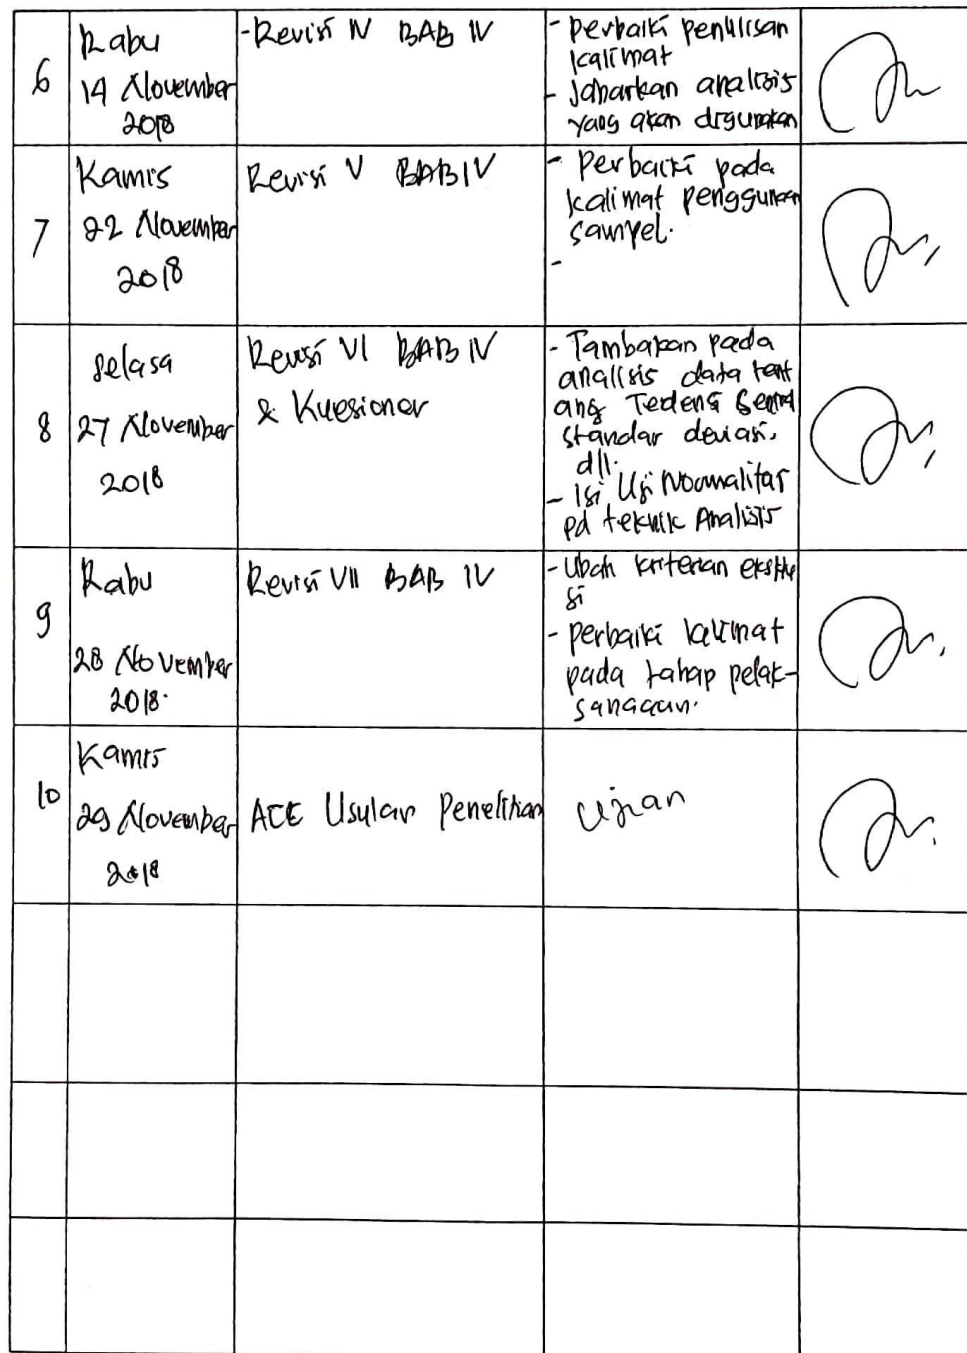 6
Rabu
14 November
2018
- Revisi IV BAB IV
- Perbaiki penulisan
kalimat
- Jabarkan analisis
yang akan digunakan
7
Kamis
22 November
2018
Revisi V BAB IV
- Perbaiki pada
kalimat penggunaan
sampel.
-
8
Selasa
27 November
2018
Revisi VI BAB IV
& Kuesioner
- Tambakan pada
analisis data tent
ang Tedensi Sentral
standar deviasi,
dll.
- Isi Uji Normalitas
pd teknik Analisis
9
Rabu
28 November
2018.
Revisi VII BAB IV
- Ubah kriterian eksklu
si
- perbaiki kalimat
pada tahap pelak-
sanaaan.
10
Kamis
29 November
2018
ACC Usulan Penelitian
Ujian